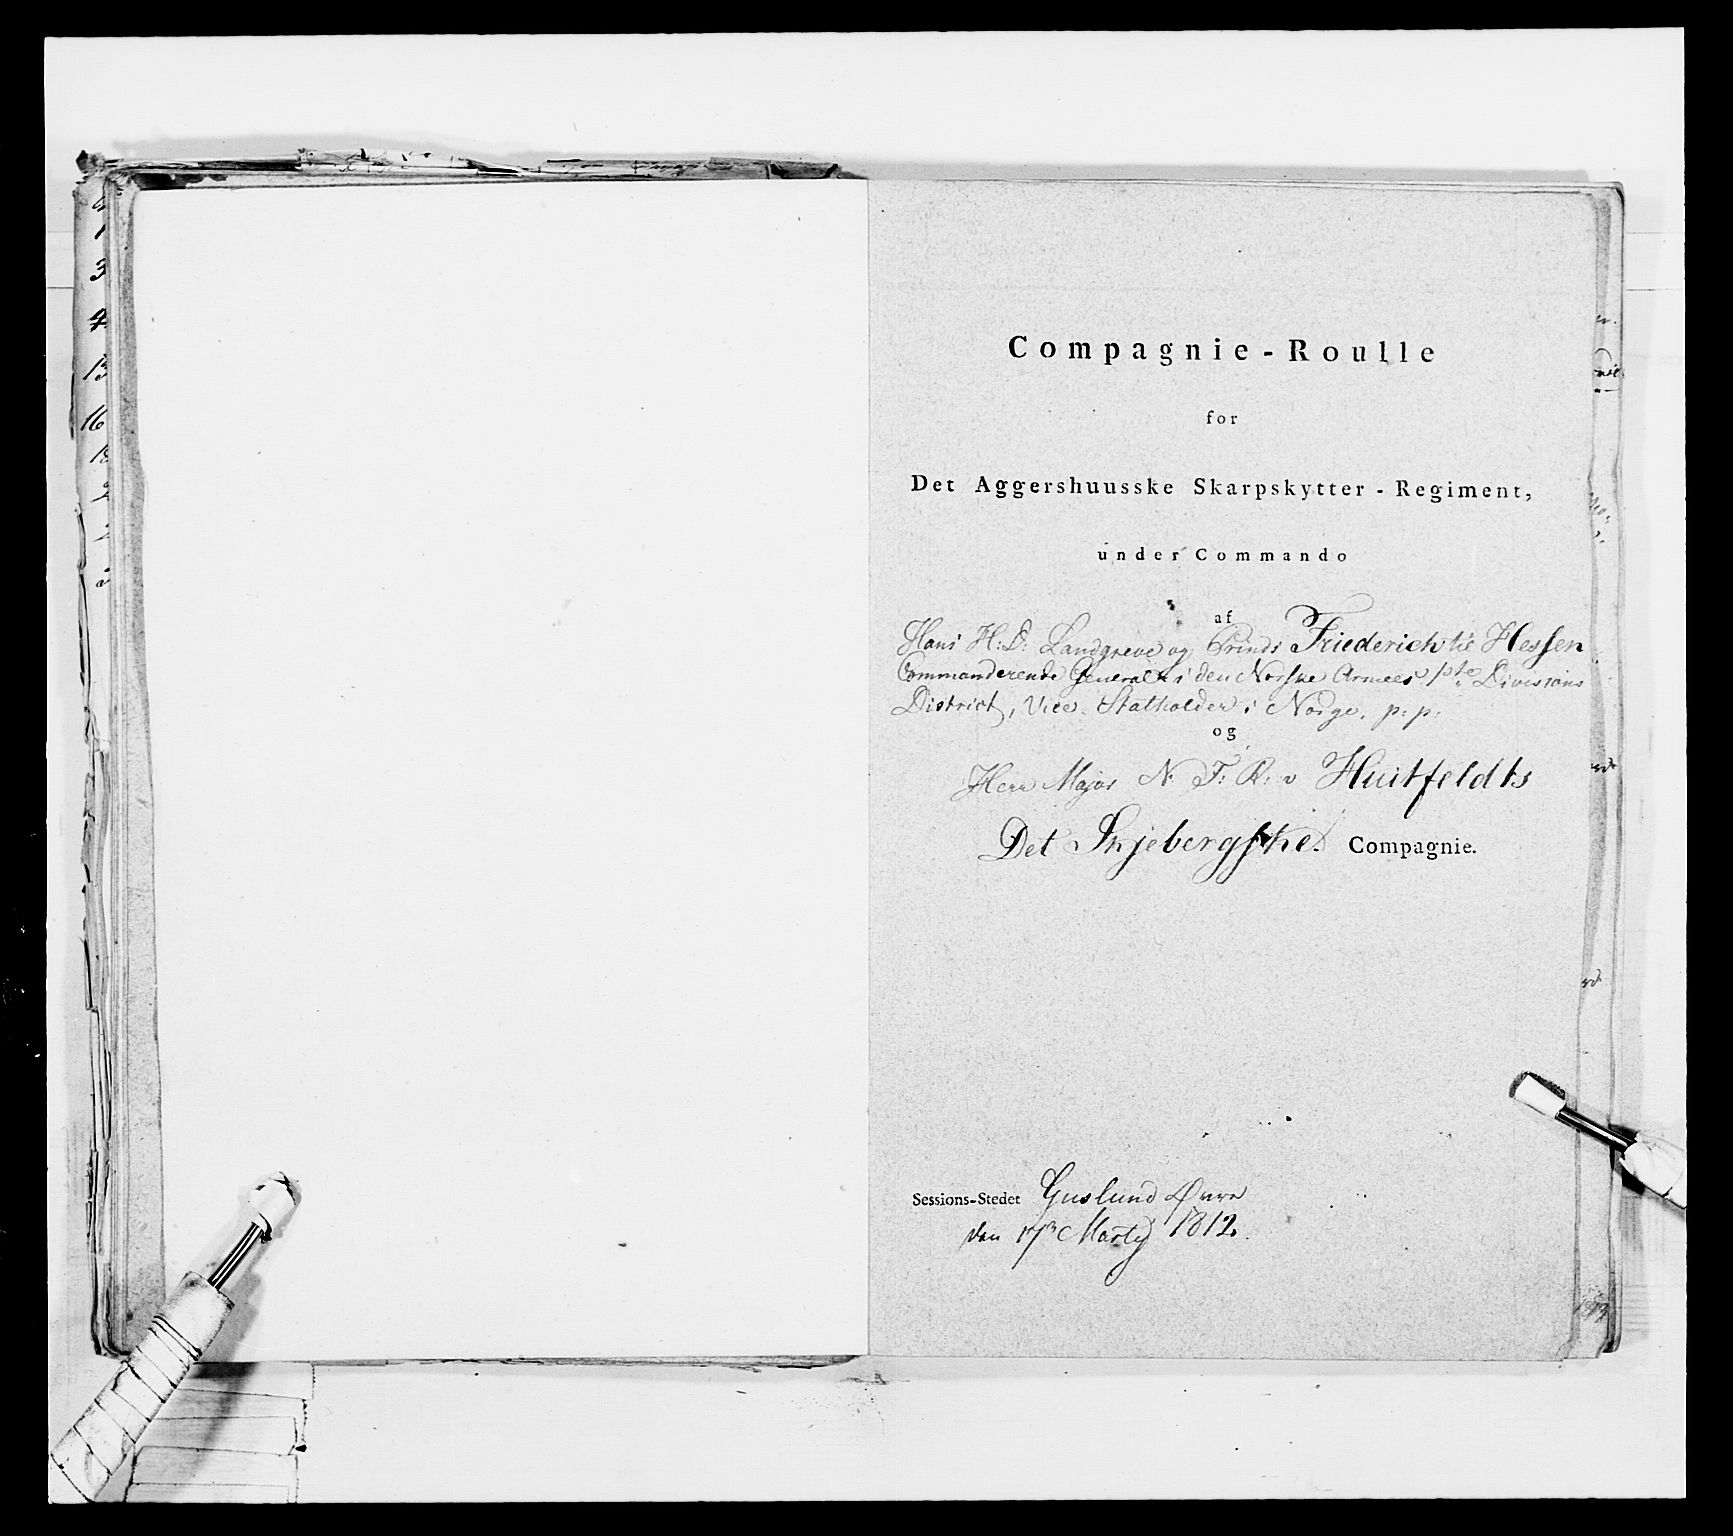 Compagnie-Roulle
for
Det Aggershuusske Skarpskytter-Regiment,
under Commando
af
Hans H: D: Landgreve og Prinds Friederich til Hessen
Commanderende General i den Norske Armees 1ste Divisions
District, Vice Statholder i Norge, p: p:
og
Herr Major N: F: R: v Huitfeldts
Det Skjebergske Compagnie.
Sessions-Stedet Guslund Øvre
den 17 Martij 1812.